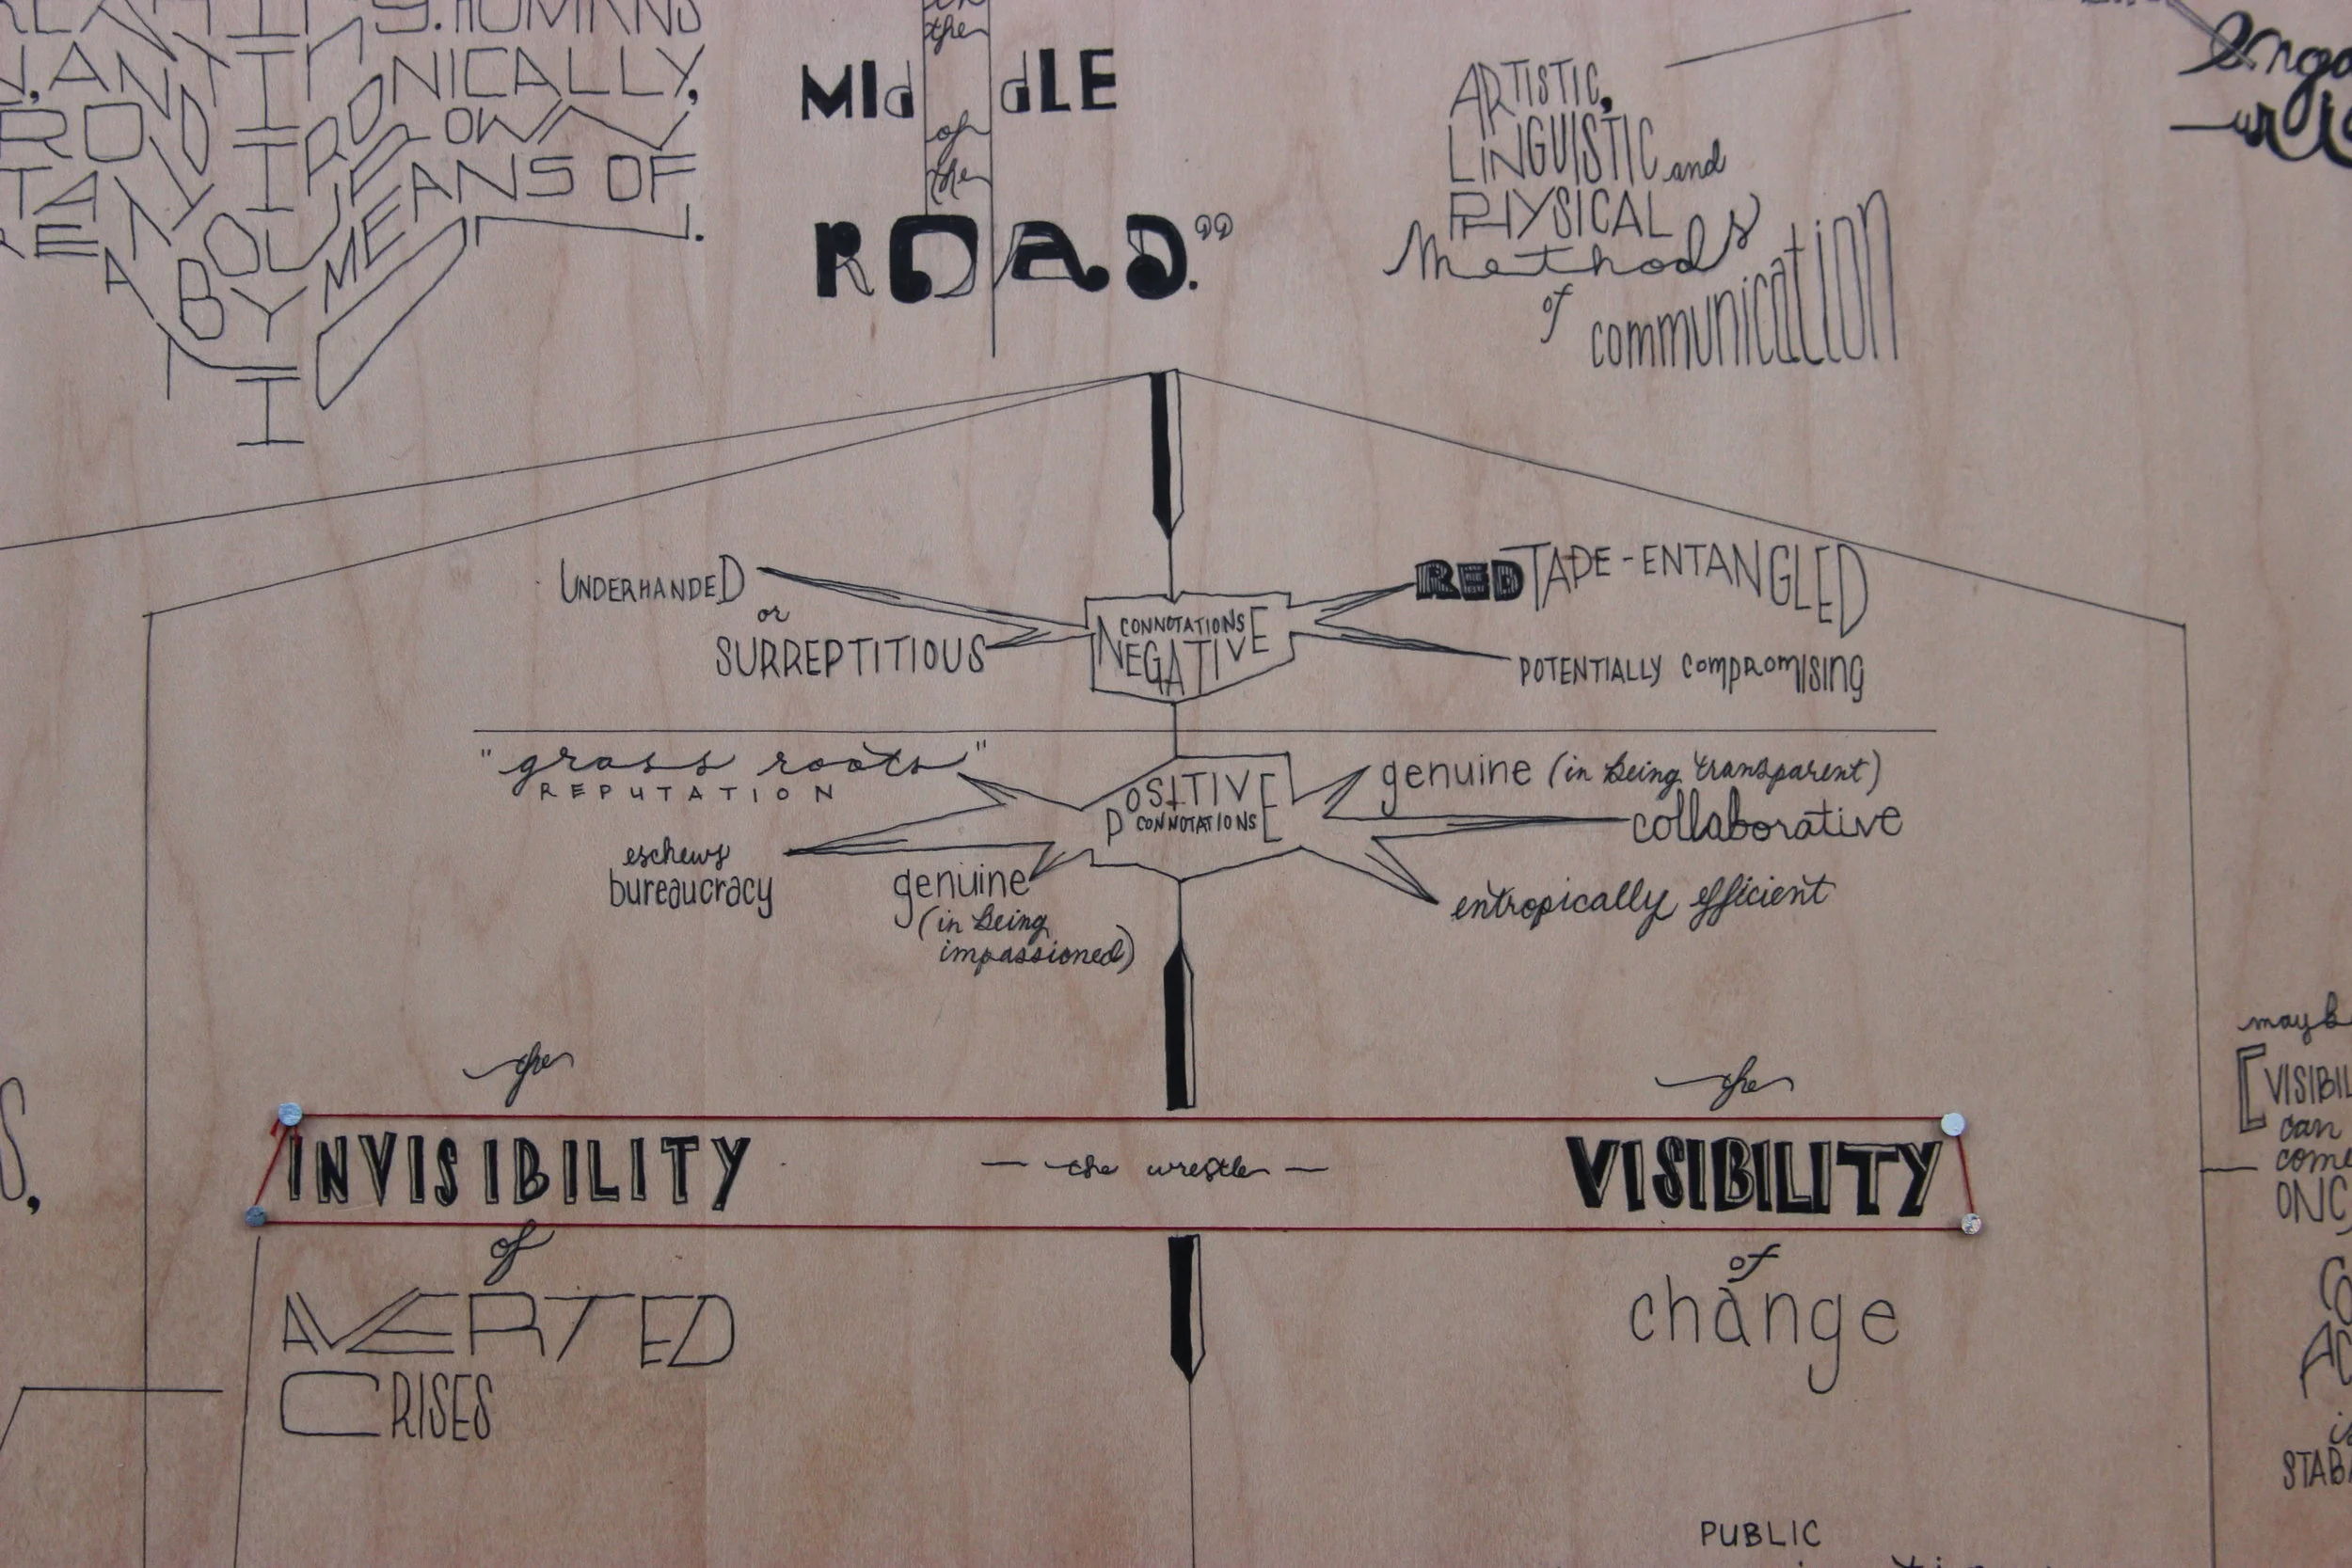 HUMANS
AND
IRONICALLY,
OUR OWN
MEANS OF
BY
in
the
MIddLE
of
the
ROAD."
ARTISTIC,
LINGUISTIC and
PHYSICAL
Methods
of
communication
UNDERHANDED
or
SURREPTITIOUS
CONNOTATIONS
NEGATIVE
RED TAPE-ENTANGLED
POTENTIALLY COMPROMISING
"grass roots"
REPUTATION
eschews
bureaucracy
genuine
(in being
impassioned)
POSITIVE
CONNOTATIONS
genuine (in being transparent)
collaborative
entropically efficient
the
INVISIBILITY
of
AVERTED
CRISES
— the wrestle —
the
VISIBILITY
of
change
mayb
[VISIBIL
can
come
ONC
is
STAB
PUBLIC